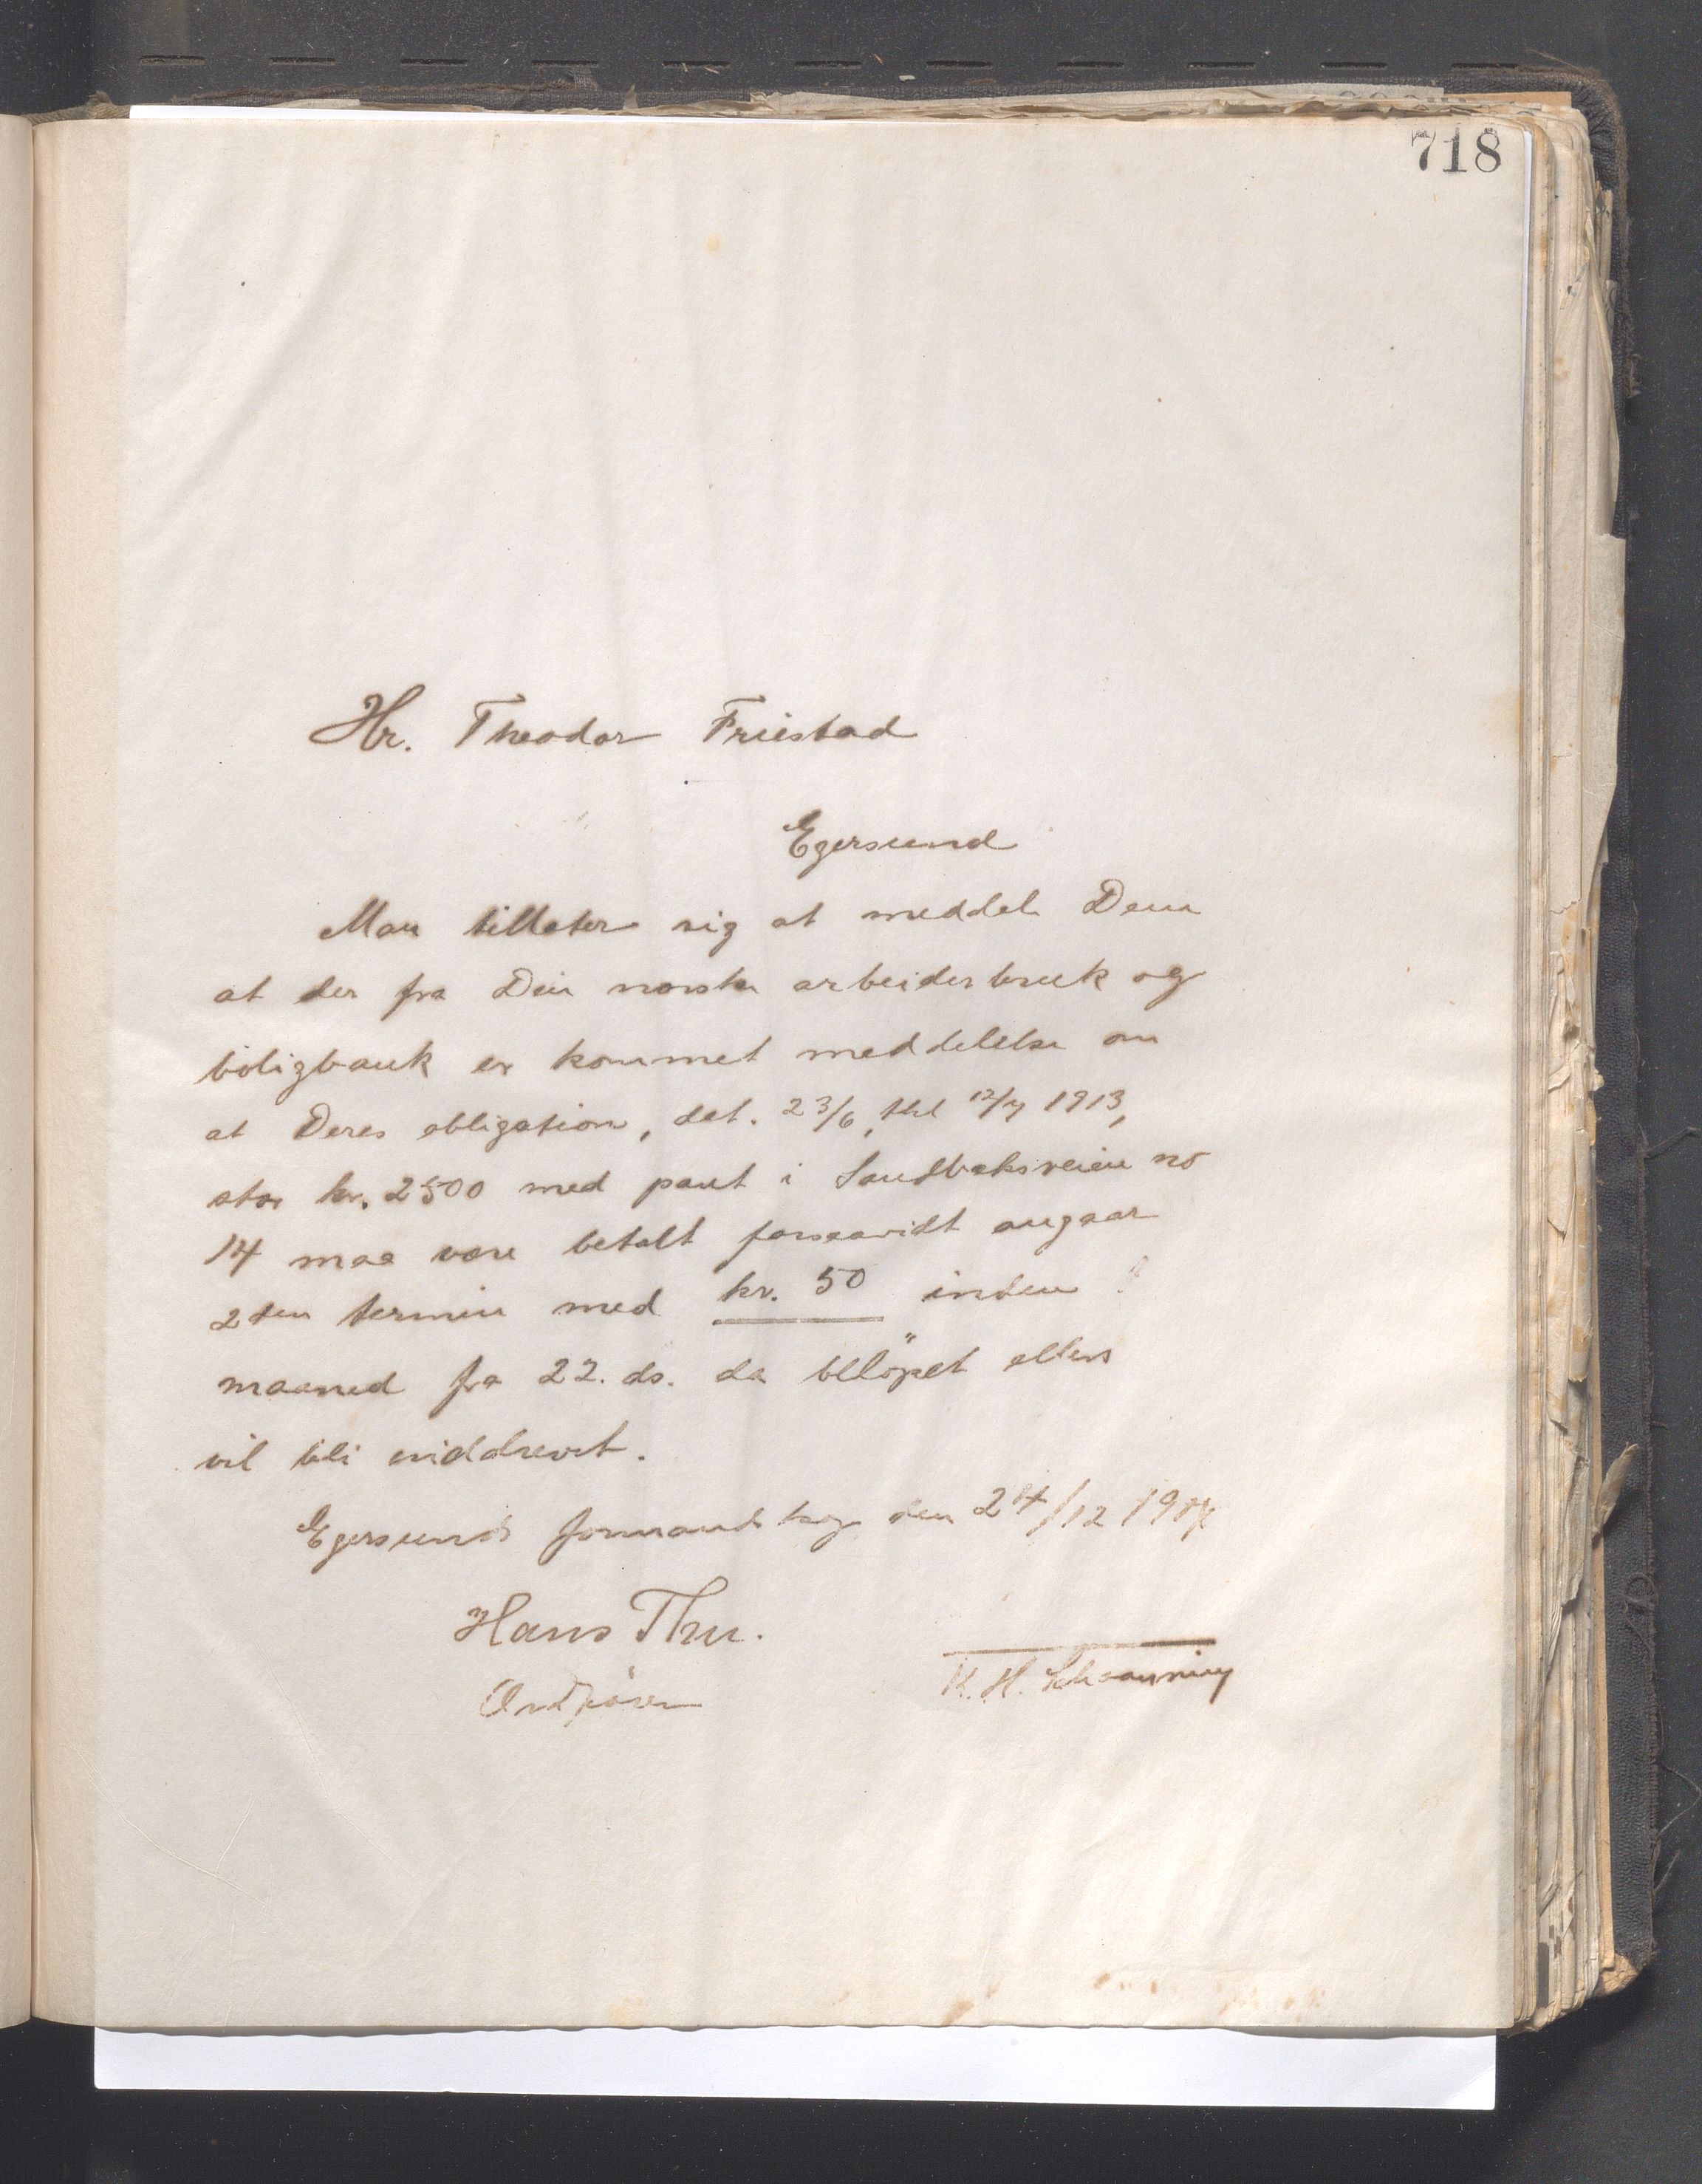 718
Hr. Theodor Friestad
Egersund
Man tillater sig at meddele Dem
at der fra Den norske arbeiderbruk og
boligbank er kommet meddelelse om
at Deres obligation, dat. 23/6, thl 12/7 1913,
stor kr. 2500 med pant i Sandbæksveien no
14 maa være betalt forsaavidt angaar
2den termin med kr. 50 inden 1
maaned fra 22. ds. da belöpet ellers
vil bli inddrevet.
Egersunds formandskap den 24/12 1914
Hans Thu.
Ordförer
K. H. Schaanning